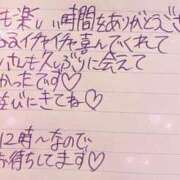 も楽しい時間をありがとうござ
イチャイチャ喜んでくれて
さんも久しぶりに会えて
かったです♡
びにきてね♡
12時〜なので
お待ちしてます♡